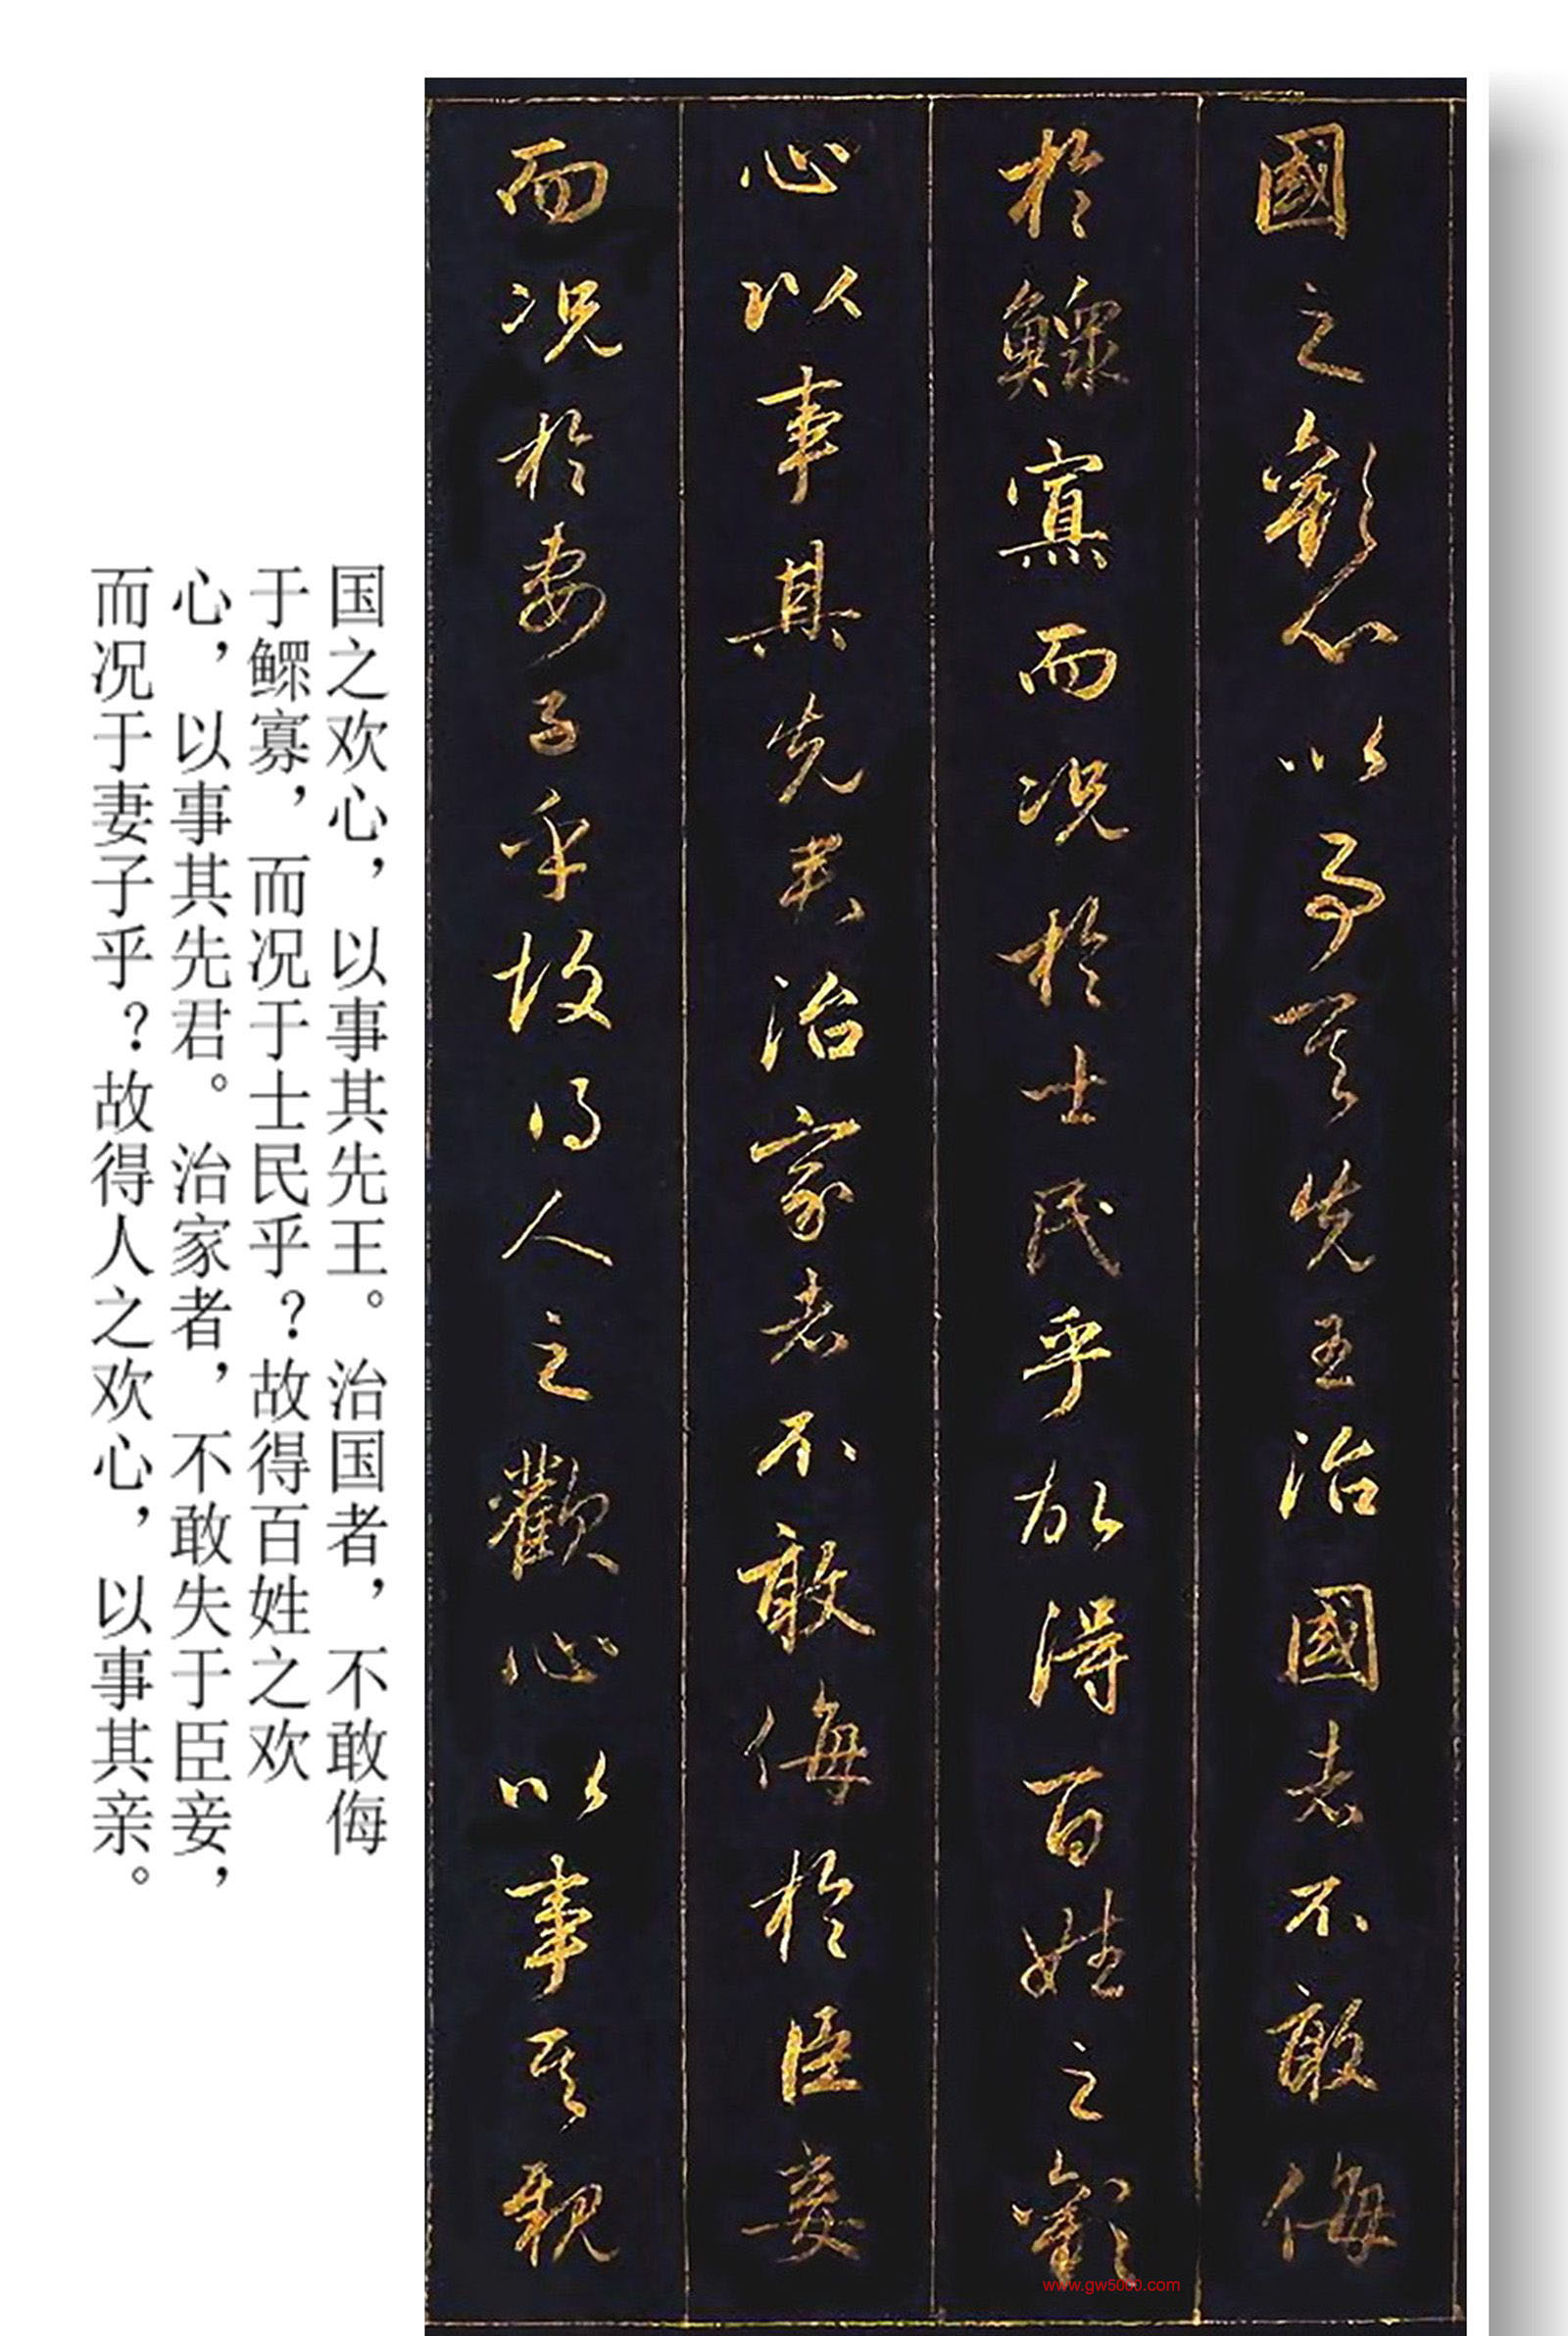 國之歡心以事其先王治國者不敢侮
於鰥寡而况於士民乎故得百姓之歡
心以事其先君治家者不敢侮於臣妾
而况於妻子乎故得人之歡心以事其親
国之欢心，以事其先王。治国者，不敢侮
于鳏寡，而况于士民乎？故得百姓之欢
心，以事其先君。治家者，不敢失于臣妾，
而况于妻子乎？故得人之欢心，以事其亲。
www.gw5000.com